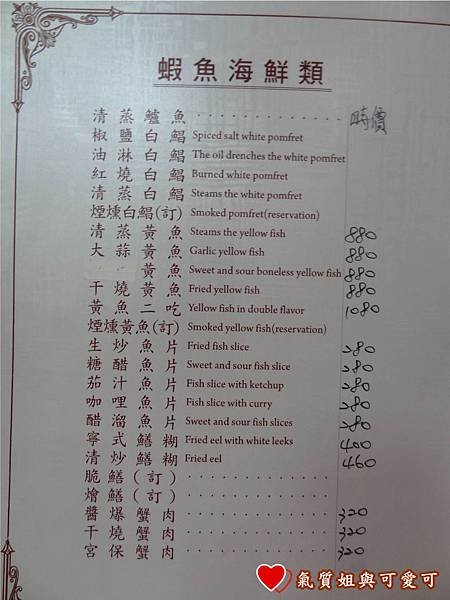 蝦魚海鮮類
清蒸鱸魚 · · · · · · · · · · · · · 時價
椒鹽白鯧 Spiced salt white pomfret
油淋白鯧 The oil drenches the white pomfret
紅燒白鯧 Burned white pomfret
清蒸白鯧 Steams the white pomfret
煙燻白鯧(訂) Smoked pomfret(reservation)
清蒸黃魚 Steams the yellow fish 880
大蒜黃魚 Garlic yellow fish 880
黃魚 Sweet and sour boneless yellow fish 880
干燒黃魚 Fried yellow fish 880
黃魚二吃 Yellow fish in double flavor 1080
煙燻黃魚(訂) Smoked yellow fish(reservation)
生炒魚片 Fried fish slice 280
糖醋魚片 Sweet and sour fish slice 280
茄汁魚片 Fish slice with ketchup 280
咖哩魚片 Fish slice with curry 280
醋溜魚片 Sweet and sour fish slices 280
寧式鱔糊 Fried eel with white leeks 400
清炒鱔糊 Fried eel 460
脆鱔(訂) · · · · · · · · · · · · ·
燴鱔(訂) · · · · · · · · · · · · ·
醬爆蟹肉 · · · · · · · · · · · · · 320
干燒蟹肉 · · · · · · · · · · · · · 320
宮保蟹肉 · · · · · · · · · · · · · 320
氣質姐與可愛可